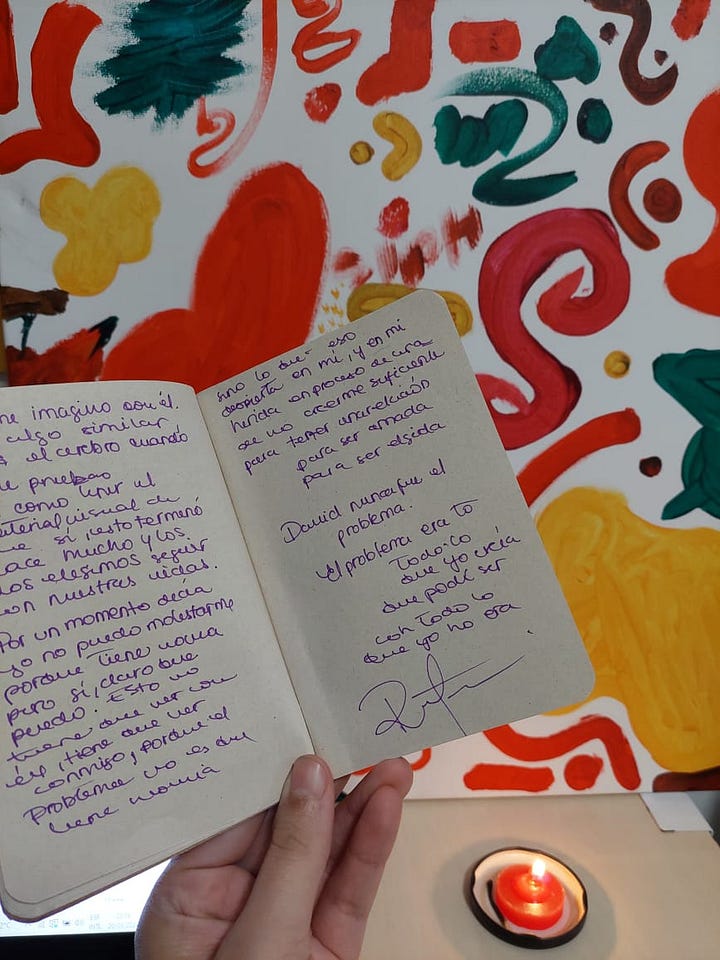 me imagino con él.
algo similar
el cerebro cuando
pruebas
como tener el
material visual de
que sí, esto terminó
hace mucho y los
dos elegimos seguir
con nuestras vidas.
Por un momento decía
yo no puedo molestarme
porque tiene novia
pero sí, claro que
puedo. Esto no
tiene que ver con
él, tiene que ver
conmigo, porque el
problema no es que
tiene novia
sino lo que eso
despierta en mí, y en mi
herida en proceso de cura
de no creerme suficiente
para tener una relación
para ser amada
para ser elegida
David nunca fue el
problema.
El problema era yo
Todo lo
que yo creía
que podí ser
con Todo lo
que yo no era